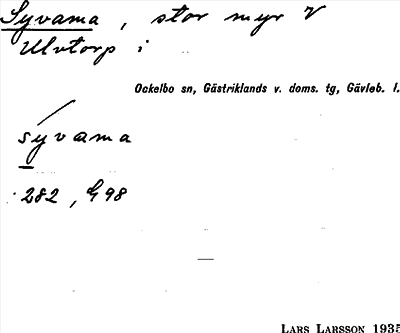 Syvama, stor myr V
Ulvtorp i
Ockelbo sn, Gästriklands v. doms. tg, Gävleb. l.
syvama
282, G98
LARS LARSSON 1935